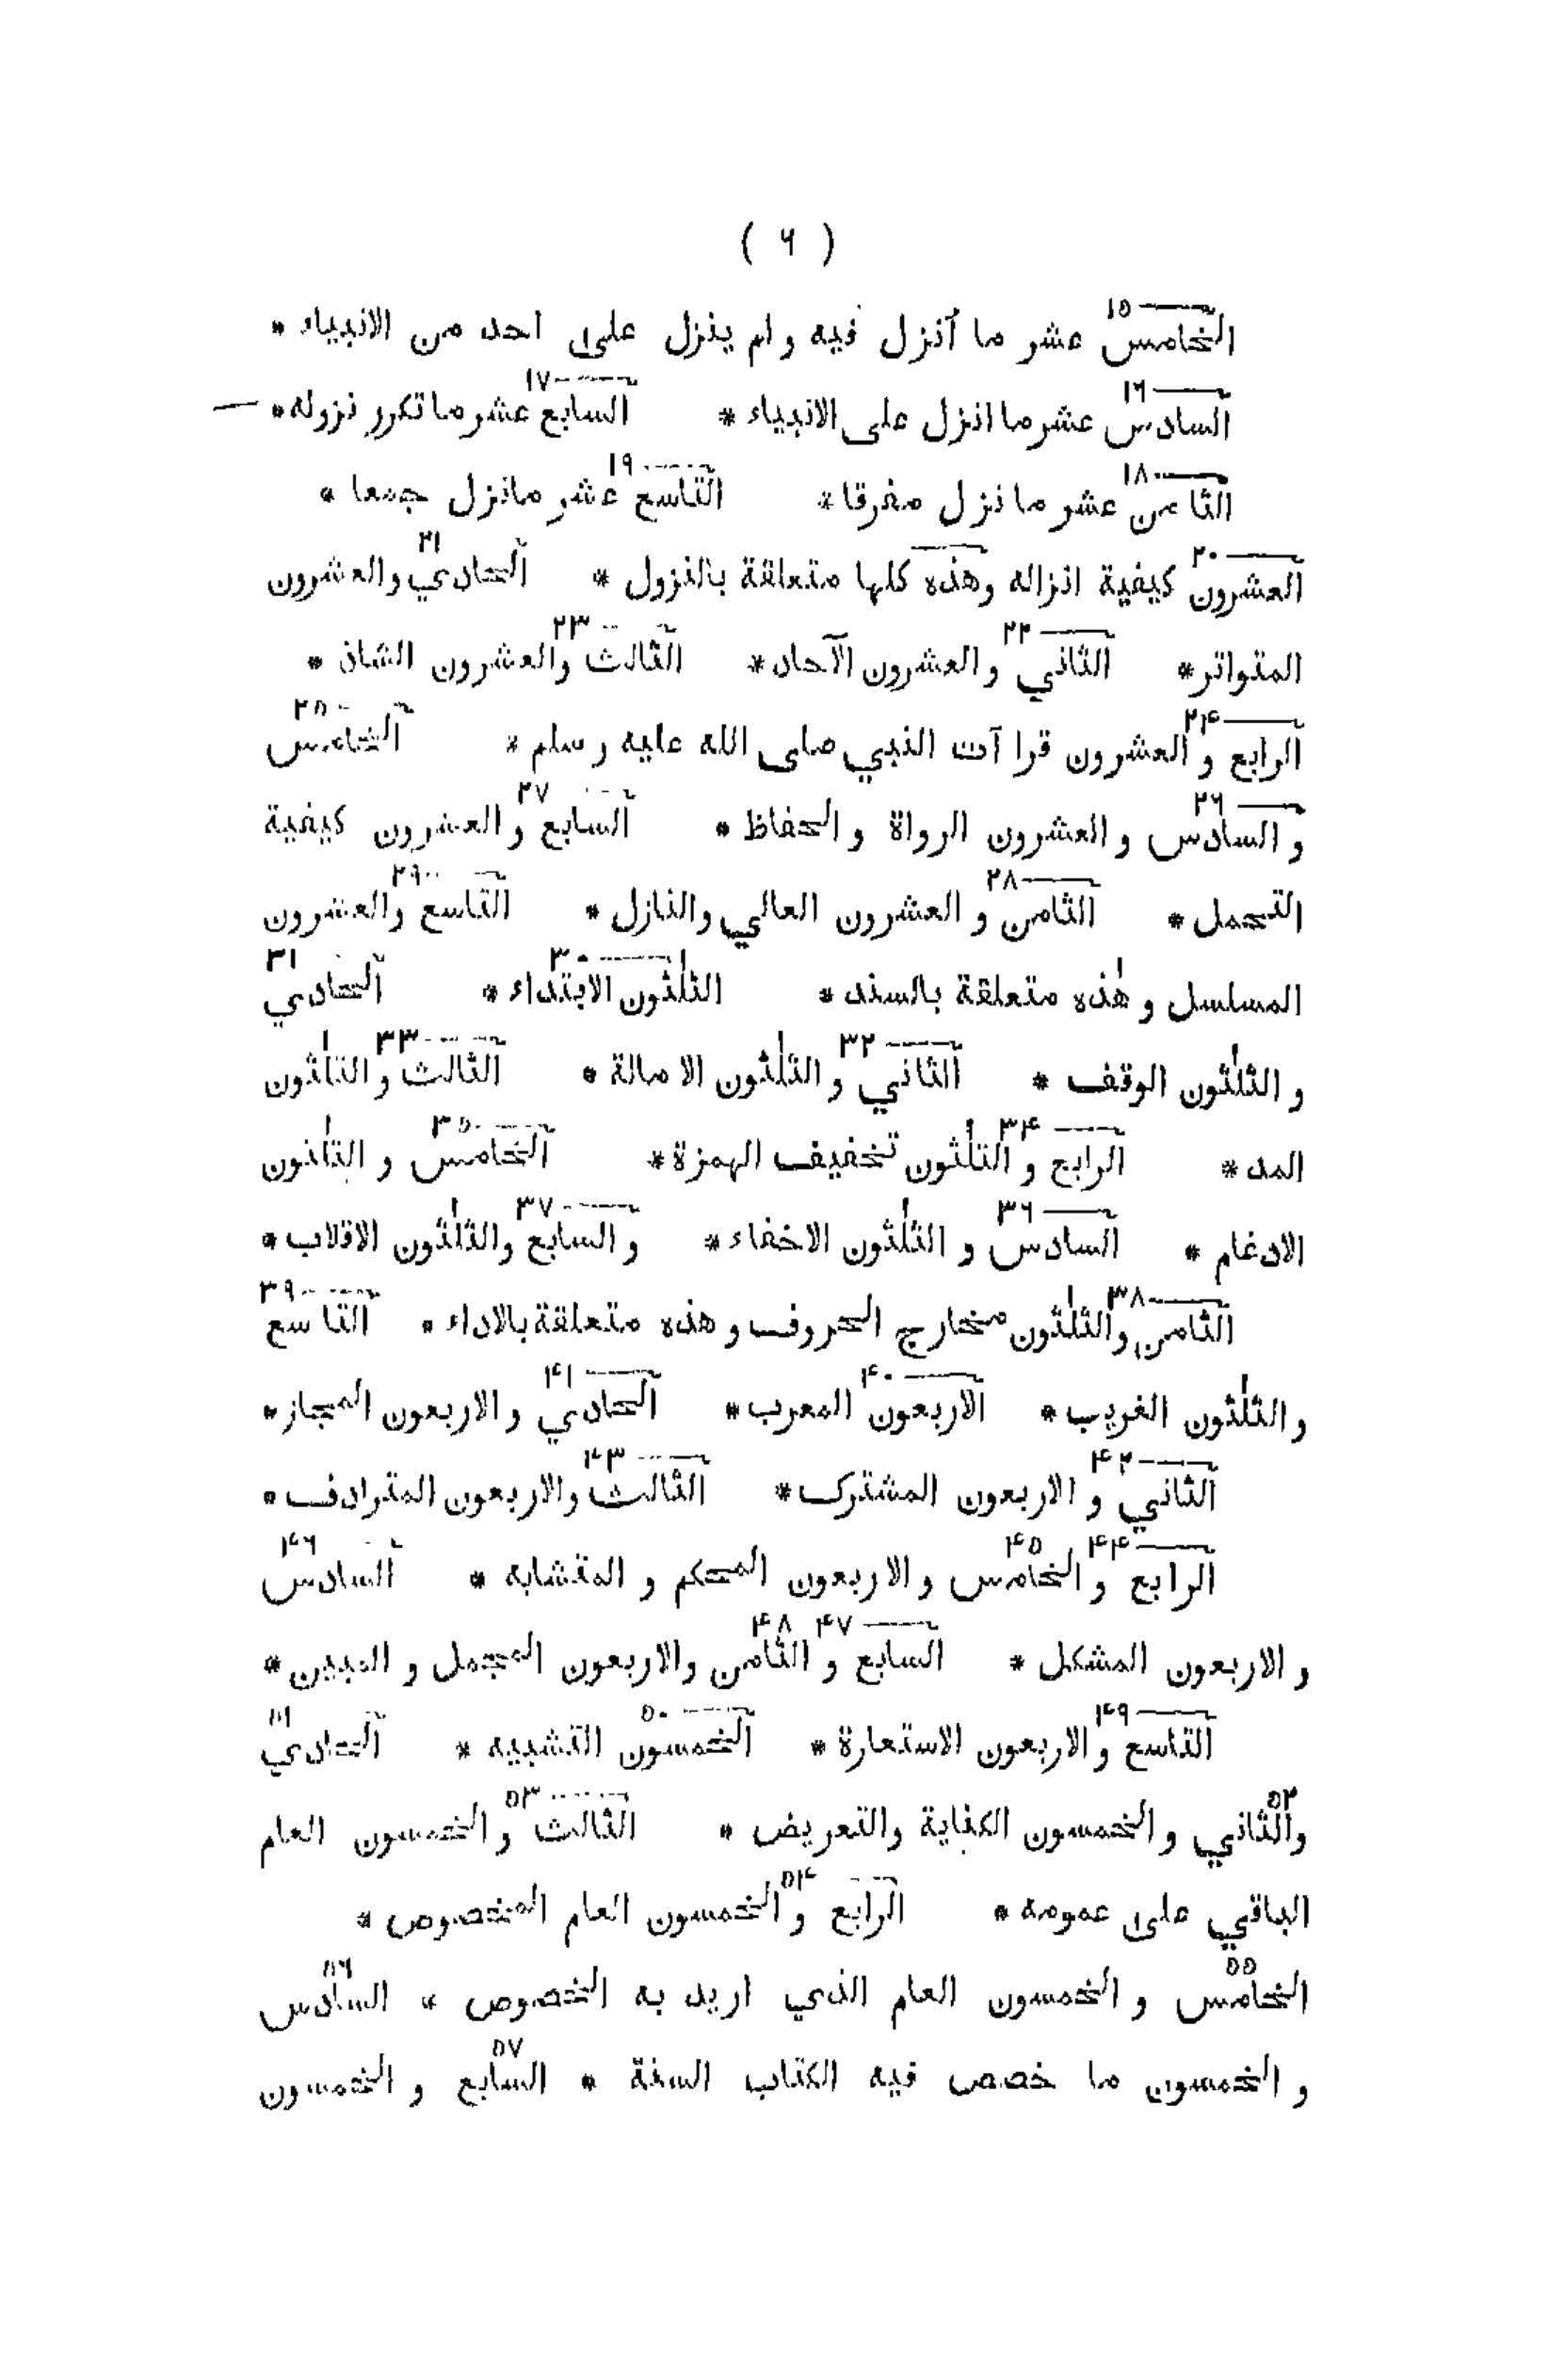 ( ۶ )
۱۵
الخامس عشر ما أنزل فيه ولم ينزل على احد من الانبياء *
۱۶ ۱۷
السادس عشر ما انزل على الانبياء * السابع عشر ما تكرر نزوله * —
۱۸ ۱۹
الثامن عشر ما نزل مفرقا * التاسع عشر مانزل جمعا *
۲۰ ۲۱
العشرون كيفية انزاله وهذه كلها متعلقة بالنزول * الحادي والعشرون
۲۲ ۲۳
المتواتر * الثاني والعشرون الآحاد * الثالث والعشرون الشاذ *
۲۴ ۲۵
الرابع و العشرون قرا آت النبي صلى الله عليه وسلم * الخامس
۲۶ ۲۷
و السادس و العشرون الرواة و الحفاظ * السابع و العشرون كيفية
۲۸ ۲۹
التحمل * الثامن و العشرون العالي والنازل * التاسع والعشرون
۳۰ ۳۱
المسلسل و هذه متعلقة بالسند * الثلثون الابتداء * الحادي
۳۲ ۳۳
و الثلثون الوقف * الثاني و الثلثون الامالة * الثالث و الثلثون
۳۴ ۳۵
المد * الرابع و الثلثون تخفيف الهمزة * الخامس و الثلثون
۳۶ ۳۷
الادغام * السادس و الثلثون الاخفاء * و السابع والثلثون الاقلاب *
۳۸ ۳۹
الثامن والثلثون مخارج الحروف و هذه متعلقة بالاداء * التاسع
۴۰ ۴۱
و الثلثون الغريب * الاربعون المعرب * الحادي و الاربعون المجاز *
۴۲ ۴۳
الثاني و الاربعون المشترك * الثالث والاربعون المترادف *
۴۴ ۴۵ ۴۶
الرابع و الخامس و الاربعون المحكم و المتشابه * السادس
۴۷ ۴۸
و الاربعون المشكل * السابع و الثامن والاربعون المجمل و المبين *
۴۹ ۵۰ ۵۱
التاسع و الاربعون الاستعارة * الخمسون التشبيه * الحادي
۵۲ ۵۳
والثاني و الخمسون الكناية والتعريض * الثالث و الخمسون العام
۵۴
الباقي على عمومه * الرابع و الخمسون العام المخصوص *
۵۵ ۵۶
الخامس و الخمسون العام الذي اريد به الخصوص * السادس
۵۷
و الخمسون ما خصص فيه الكتاب السنة * السابع و الخمسون